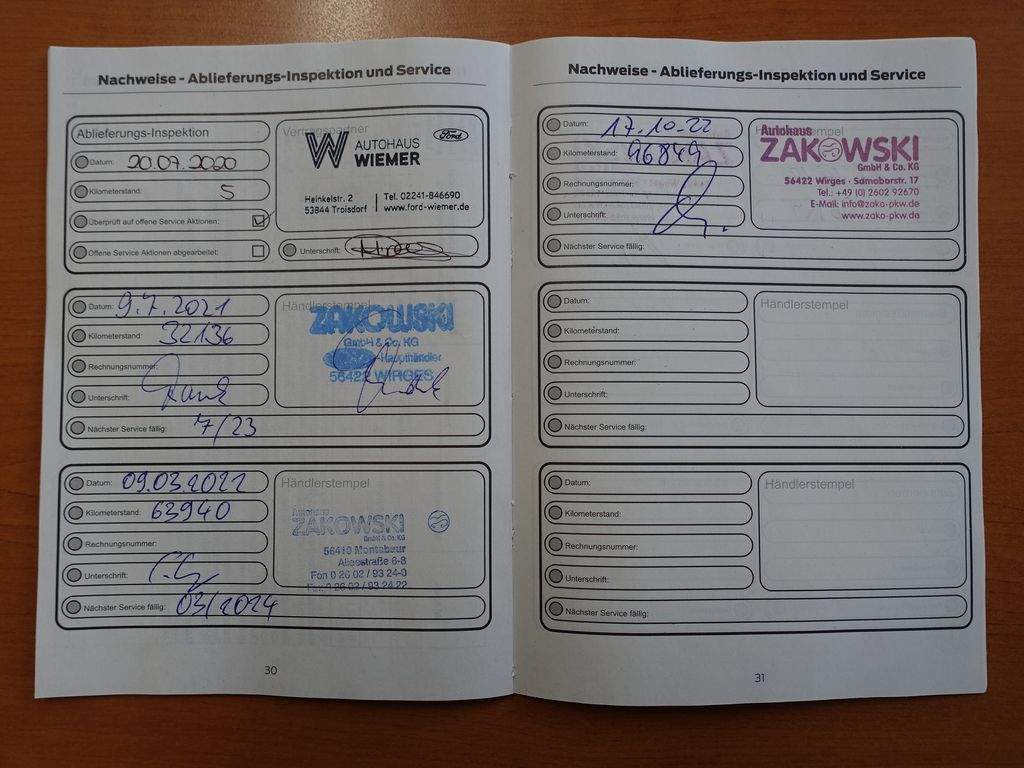 Nachweise - Ablieferungs-Inspektion und Service
Ablieferungs-Inspektion
Datum: 20.07.2020
Kilometerstand: 5
Überprüft auf offene Service Aktionen:
Offene Service Aktionen abgearbeitet:
Vertragspartner
Ford
W AUTOHAUS
WIEMER
Heinkelstr. 2
53844 Troisdorf
Tel. 02241-846690
www.ford-wiemer.de
Unterschrift:
Datum: 9.7.2021
Kilometerstand: 32136
Rechnungsnummer:
Unterschrift:
Nächster Service fällig: 7/23
Händlerstempel
ZAKOWSKI
GmbH & Co. KG
Haupthändler
56422 WIRGES
Datum: 09.03.2022
Kilometerstand: 63940
Rechnungsnummer:
Unterschrift:
Nächster Service fällig: 03/2024
Händlerstempel
Autohaus
ZAKOWSKI
GmbH & Co. KG
56410 Montabaur
Alleestraße 6-8
Fon 0 26 02 / 93 24-0
Fax 0 26 02 / 93 24 22
30
Nachweise - Ablieferungs-Inspektion und Service
Datum: 17.10.22
Kilometerstand: 96849
Rechnungsnummer:
Unterschrift:
Nächster Service fällig:
Händlerstempel
Autohaus
ZAKOWSKI
GmbH & Co. KG
56422 Wirges · Samoborstr. 17
Tel.: +49 (0) 2602 92670
E-Mail: info@zako-pkw.de
www.zako-pkw.de
Datum:
Kilometerstand:
Rechnungsnummer:
Unterschrift:
Nächster Service fällig:
Händlerstempel
Datum:
Kilometerstand:
Rechnungsnummer:
Unterschrift:
Nächster Service fällig:
Händlerstempel
31